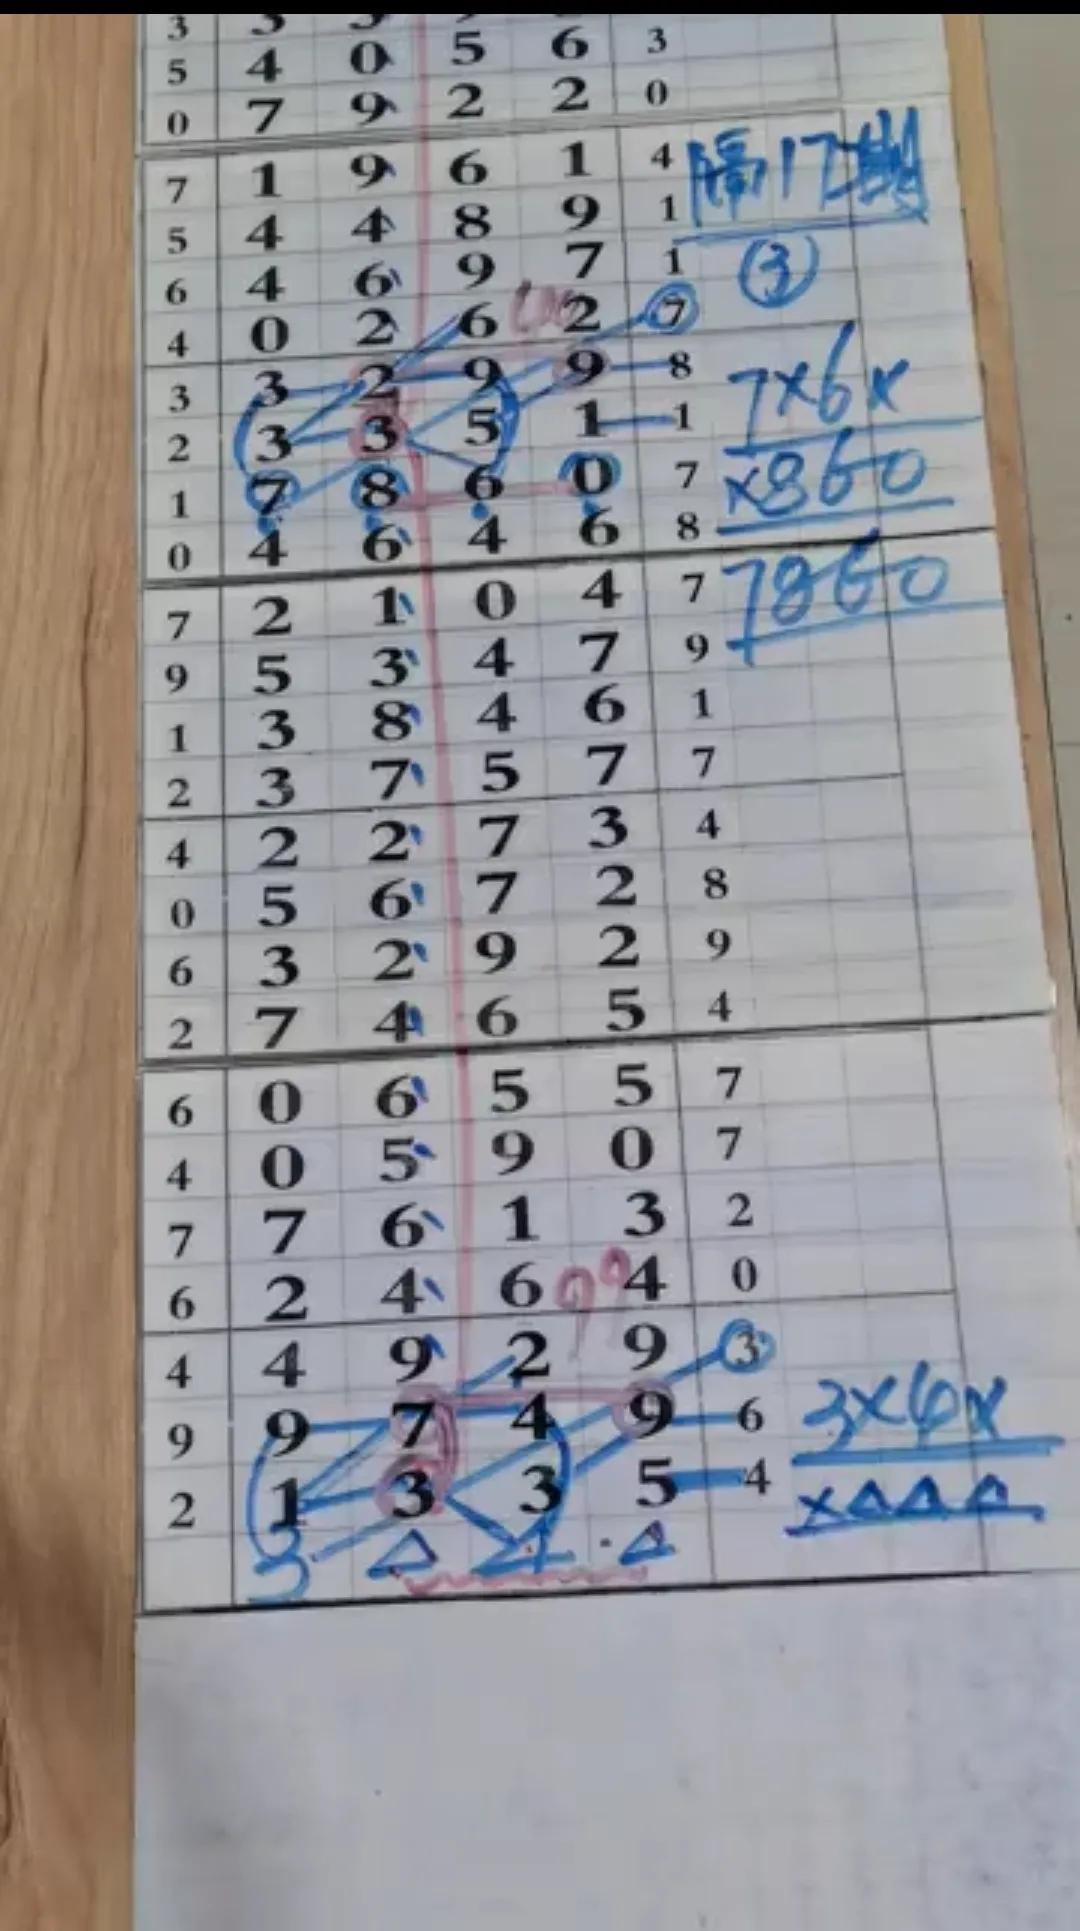 3 3 3
5 4 0 5 6 3
0 7 9 2 2 0
7 1 9 6 1 4 隔17期
5 4 4 8 9 1
6 4 6 9 7 1 ③
4 0 2 6 2 7
3 3 2 9 9 8 7×6×
2 3 3 5 1 1
1 7 8 6 0 7 ×860
0 4 6 4 6 8
7 2 1 0 4 7 7860
9 5 3 4 7 9
1 3 8 4 6 1
2 3 7 5 7 7
4 2 2 7 3 4
0 5 6 7 2 8
6 3 2 9 2 9
2 7 4 6 5 4
6 0 6 5 5 7
4 0 5 9 0 7
7 7 6 1 3 2
6 2 4 6 4 0
4 4 9 2 9 3
9 9 7 4 9 6 3×6×
2 1 3 3 5 4 ×△△△
3 △ △